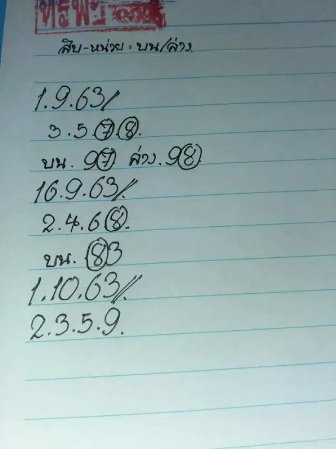 สิบ-หน่วย = บน/ล่าง
1.9.63//
3.5.7.8.
บน. 97 ล่าง. 98
16.9.63//.
2.4.6.8.
บน. 83
1.10.63//.
2.3.5.9.